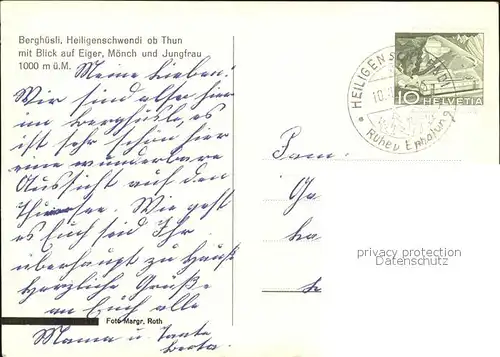 Berghüsli, Heiligenschwendi ob Thun
mit Blick auf Eiger, Mönch und Jungfrau
1000 m ü.M.
Meine Lieben!
Wir sind alsen hier
im Berghüsli, es
ist sehr schön hier
eine wunderbare
Aussicht auf den
Thunersee. Wie geht
es Euch seid Ihr
überhaupt zu Hauß
Herzliche Grüße
an Euch alle
Mama u. Tante
Berta.
Foto Margr. Roth
HEILIGENSCHWENDI
10.
Ruhe u Erholung
10 HELVETIA
Fam.
privacy protection
Datenschutz